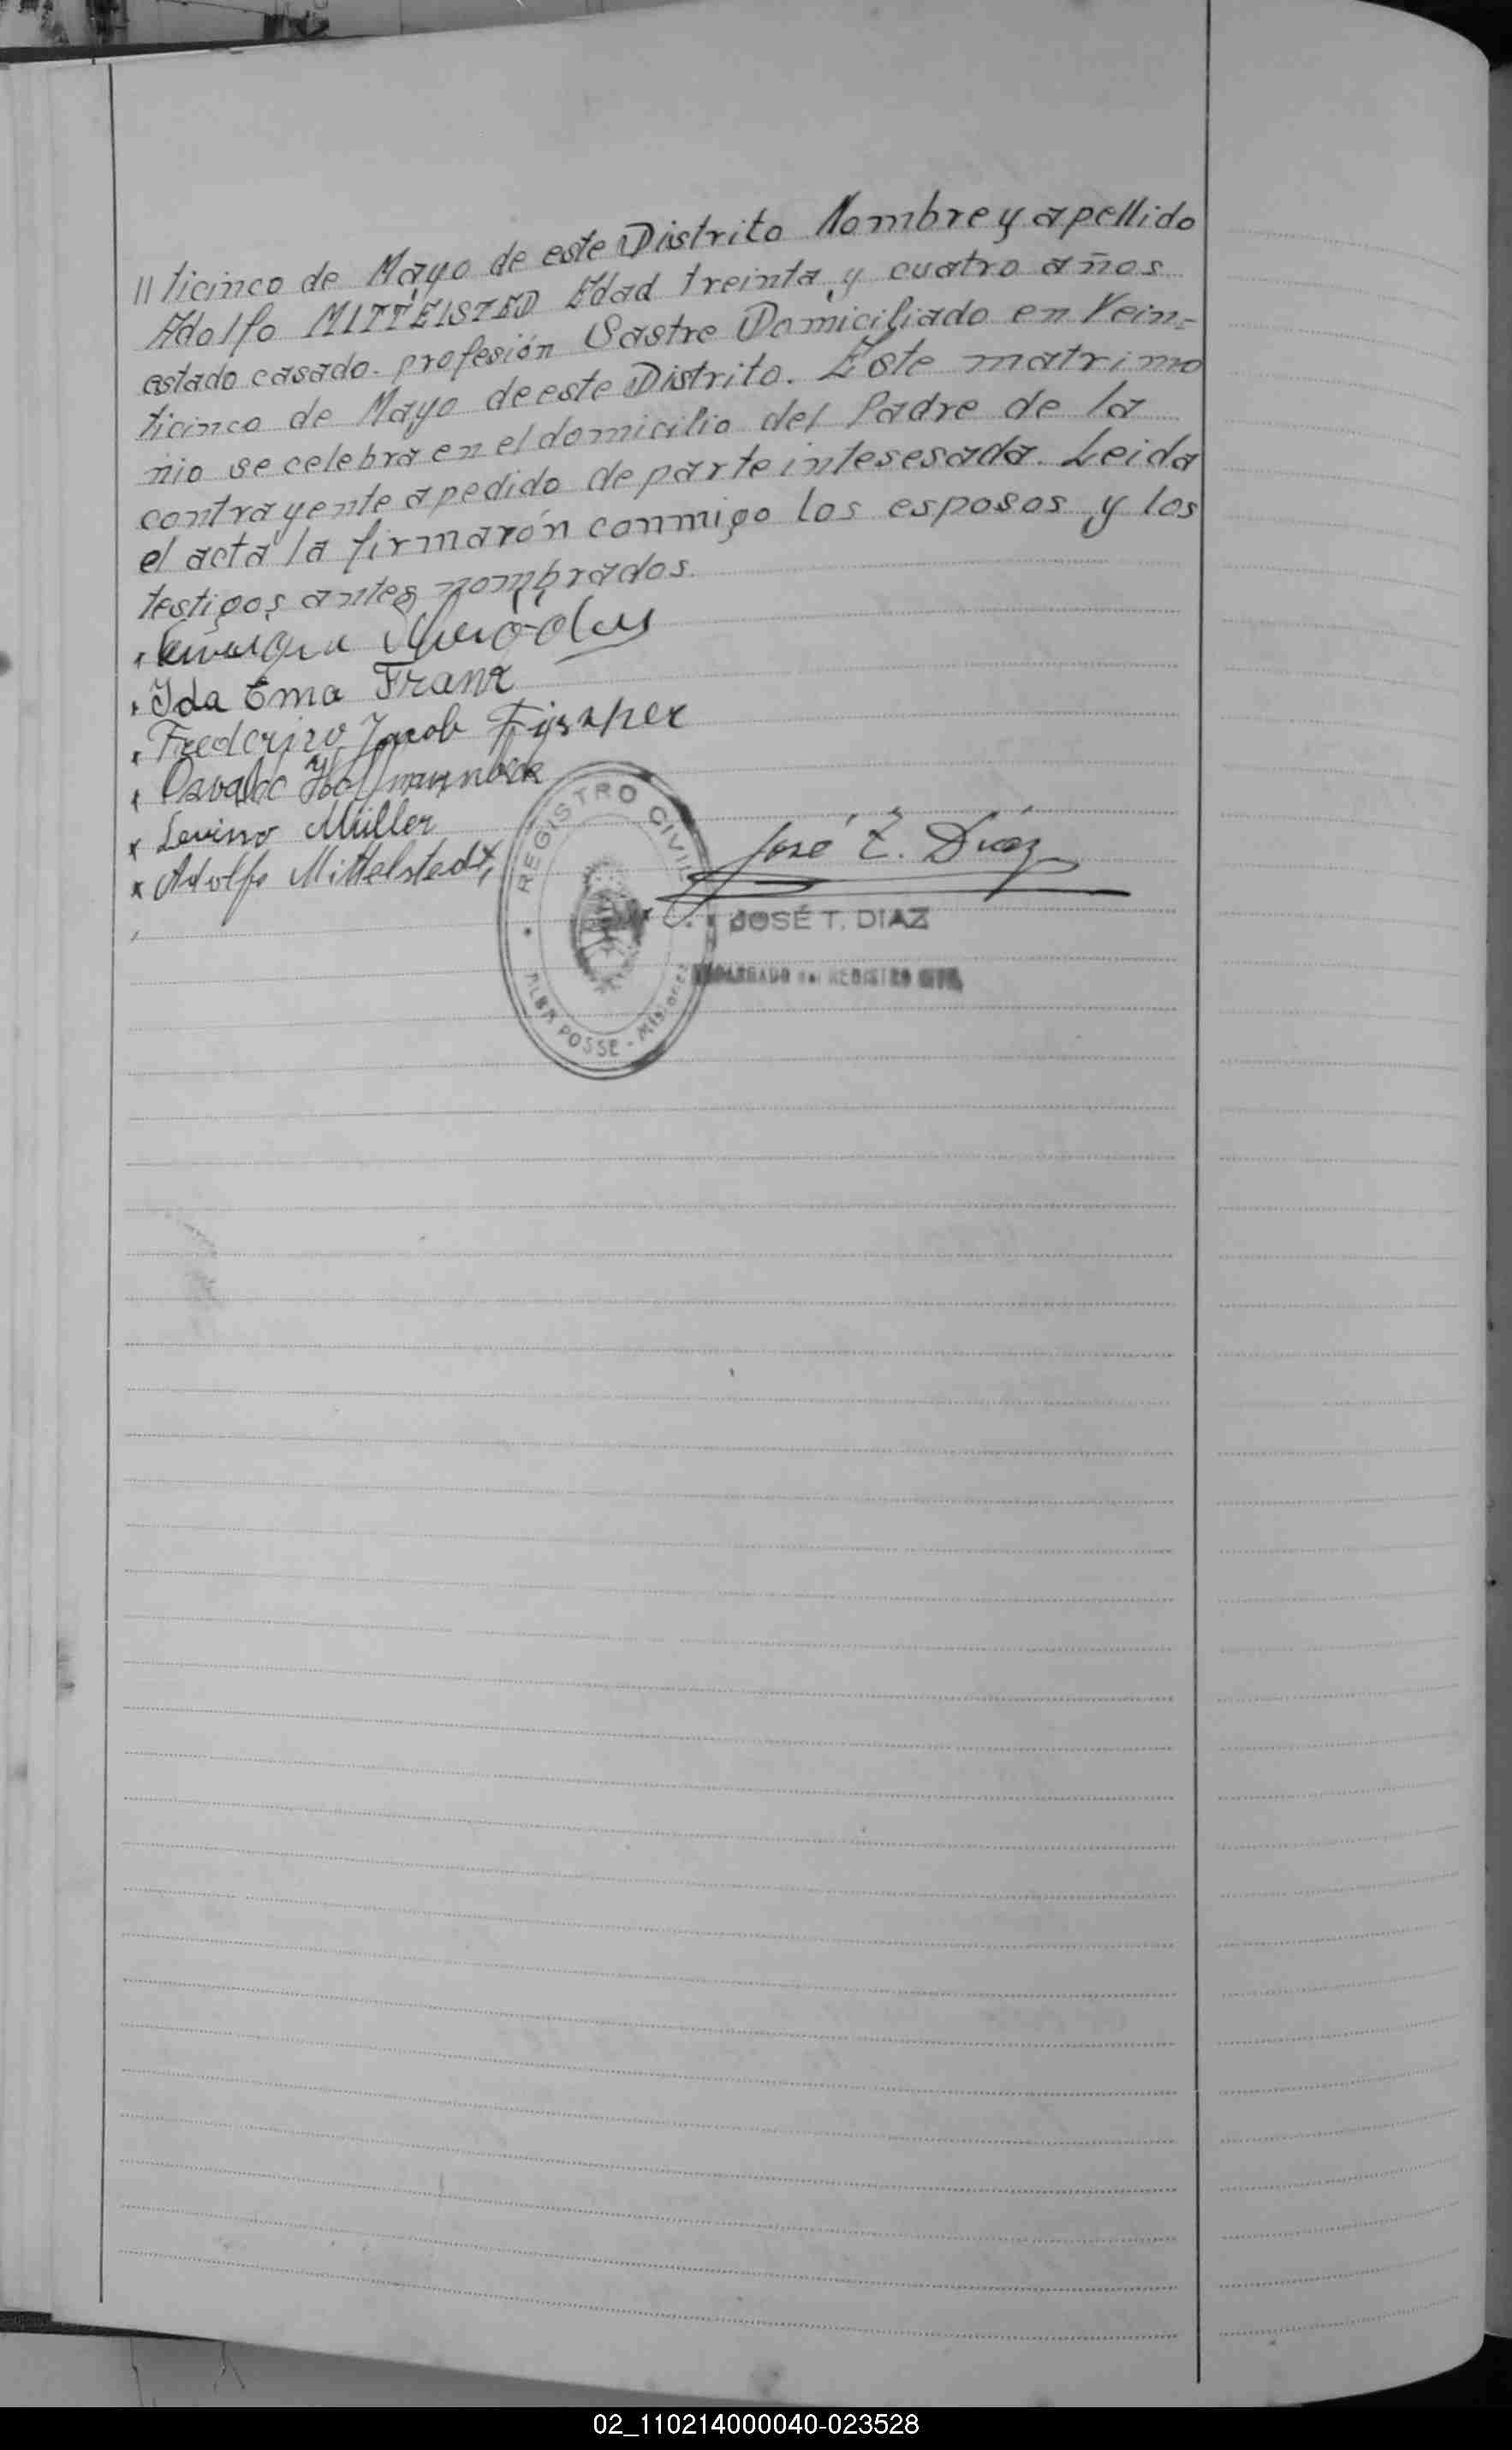 // ticinco de Mayo de este Distrito Nombre y apellido
Adolfo MITTELSTED Edad treinta y cuatro años
estado casado. profesión Sastre Domiciliado en Vein-
ticinco de Mayo de este Distrito. Este matrimo
nio se celebra en el domicilio del Padre de la
contrayente a pedido de parte intesesada. Leida
el acta la firmarón conmigo los esposos y los
testigos antes nombrados.
Ida Ema Frank
Jacob
Osvaldo
x Levino Müller
x Adolfo Mittelstedt,
José T. Diaz
JOSÉ T. DIAZ
ENCARGADO del REGISTRO CIVIL
REGISTRO CIVIL
ALBA POSSE - Misiones
02_110214000040-023528